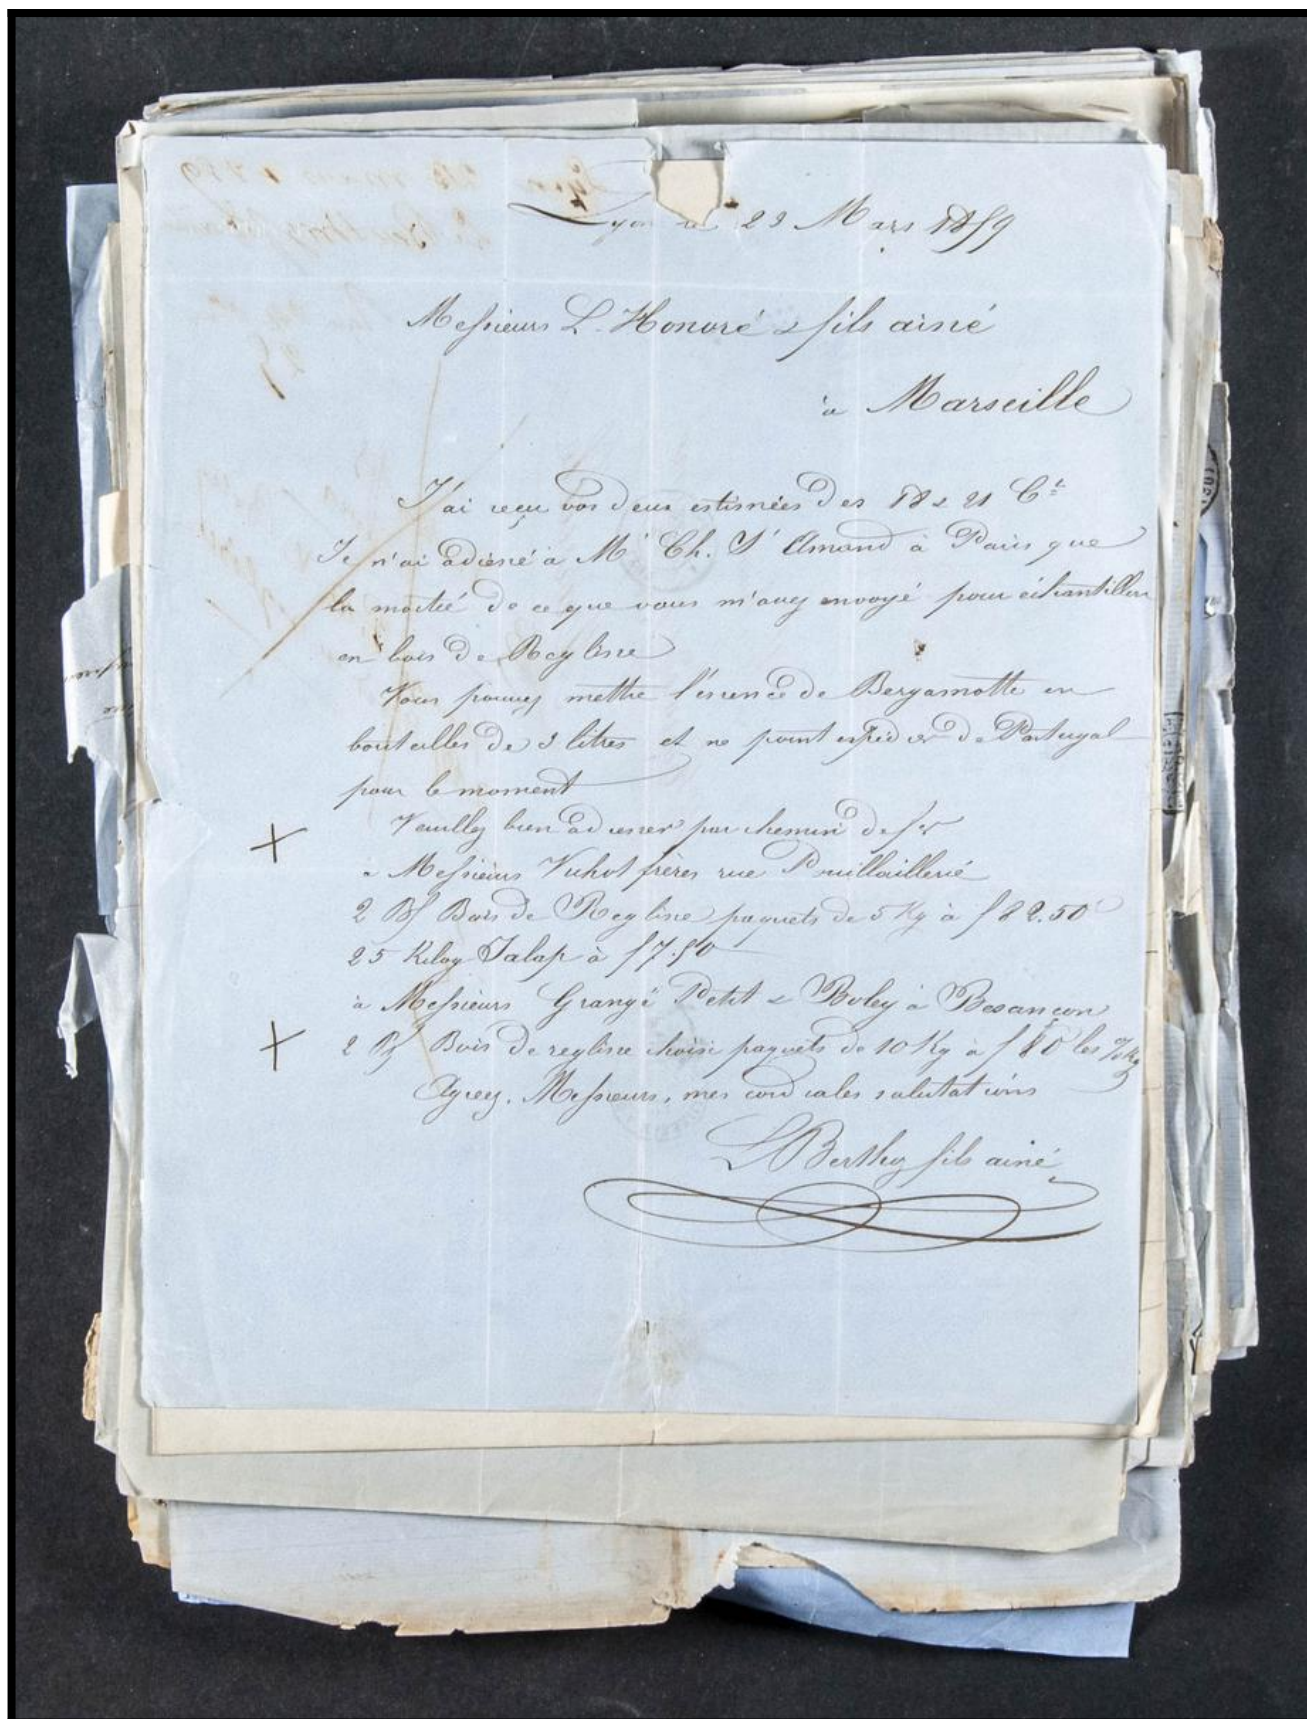 Lyon le 23 Mars 1859
Messieurs L. Honoré & fils ainé
à Marseille
J'ai reçu vos deux estimées des 18 & 21 Ct
Je n'ai adressé à Mr Ch. St Amand à Paris que
la moitié de ce que vous m'avez envoyé pour échantillon
en bois de Reglisse
Vous pouvez mettre l'essence de Bergamotte en
bouteilles de 3 litres et ne point expédier de Portugal
pour le moment
Veuillez bien adresser par chemin de fer
à Messieurs frères rue Pouillaillerie
2 Bs Bois de Reglisse paquets de 5 Kg à f 82.50
25 Kilog Jalap à f 7.50
à Messieurs Grangé Petit & Boley à Besançon
2 Bs Bois de reglisse choisi paquets de 10 Kg à f 80 les % Kg
Agréez, Messieurs, mes cordiales salutations
L Berthoz fils ainé